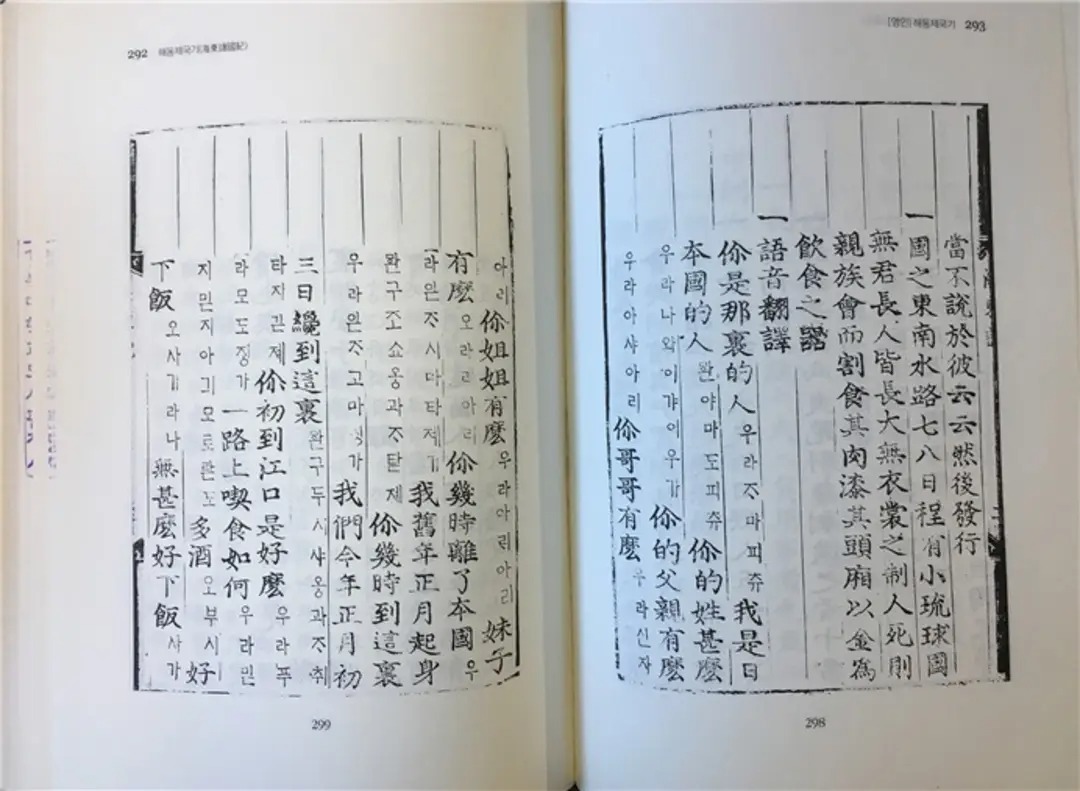 [영인] 해동제국기 293
當不說於彼云云然後發行
一國之東南水路七八日程有小琉球國
無君長人皆長大無衣裳之制人死則
親族會而割食其肉漆其頭廂以金爲
飮食之器
一語音翻譯
你是那裏的人 우라ᄌ마피츄 我是日
本國的人 완야마도피츄 你的姓甚麽
우라나와이갸이우가 你的父親有麽
우라아샤아리 你哥哥有麽 우라신자
298
292 해동제국기(海東諸國紀)
아리 你姐姐有麽 우라아리아리 妹子
有麽 오라리아리 你幾時離了本國 우
라완ᄌ시마타제기 我舊年正月起身
완구조쇼옹과ᄌ탇제 你幾時到這裏
우라완ᄌ고마 가 我們今年正月初
三日纔到這裏 완구두시샤옹과ᄌ취
타지긴제 你初到江口是好麽 우라푸
라모도징가 一路上喫食如何 우라민
지민지아기모로란도 多酒 오부시 好
下飯 오사가라나 無甚麽好下飯 사가
299